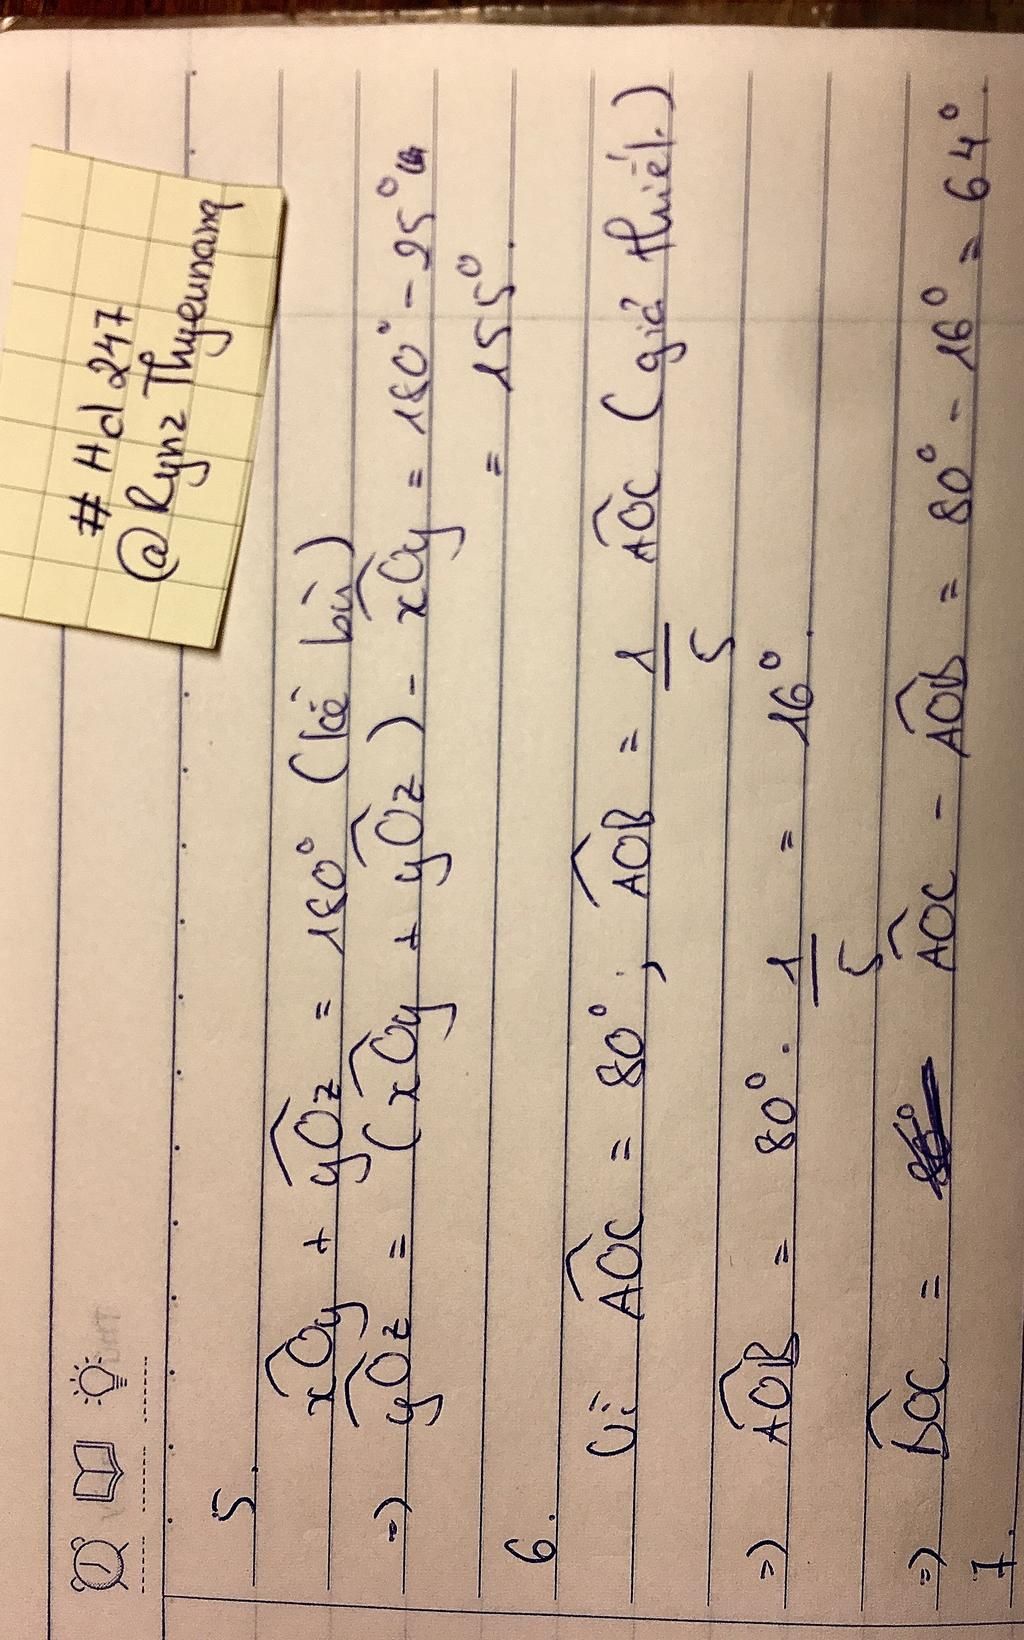 # Hd 247
@Rynz Thyeunarq
5.
x̂Oy + ŷOz = 180° (kề bù)
=) ŷOz = (x̂Oy + ŷOz) - x̂Oy = 180° - 25°
= 155°.
6.
Vì ÂOC = 80°, ÂOB = 1/5 ÂOC (giả thiết.)
=) ÂOB = 80° . 1/5 = 16°.
=) B̂OC = ÂOC - ÂOB = 80° - 16° = 64°.
7.